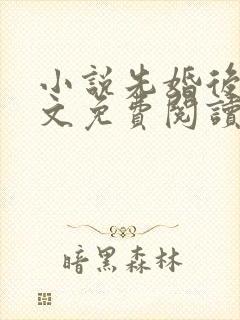 小說先婚後
文免費閱讀
暗黑森林